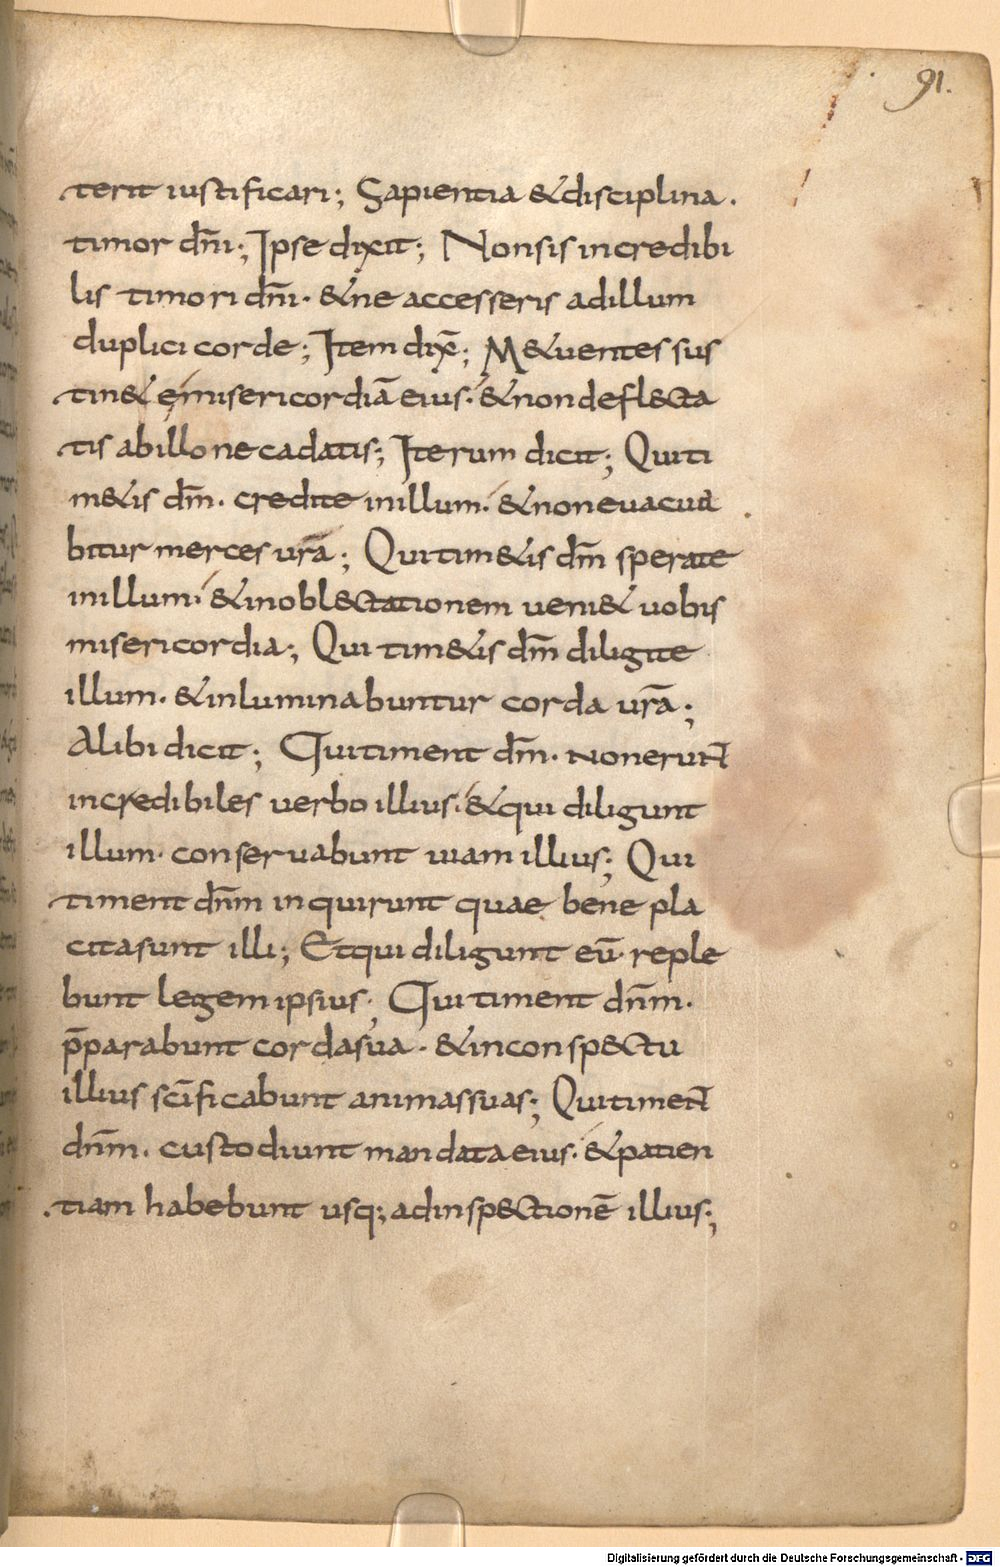 91.
terit iustificari; Sapientia & disciplina.
timor dn̄i; Ipse dixit; Non sis incredibi
lis timori dn̄i. & ne accesseris ad illum
duplici corde; Item dix̄; M&uentes sus
tin& emisericordiā eius. & non defl&cta
tis ab illo ne cadatis; Iterum dicit; Qui ti
m&is dn̄m. credite in illum. & non euacua
bitur merces ur̄a; Qui tim&is dn̄m sperate
in illum. & in obl&ctationem ueni& uobis
misericordia; Qui tim&is dn̄m diligite
illum. & inluminabuntur corda ur̄a;
Alibi dicit; Qui timent dn̄m. non erunt
incredibiles uerbo illius. & qui diligunt
illum. conseruabunt uiam illius; Qui
timent dn̄m inquirunt quae bene pla
cita sunt illi; Et qui diligunt eū. reple
bunt legem ipsius; Qui timent dn̄m.
p̄parabunt corda sua. & in consp&ctu
illius sc̄ificabunt animas suas; Qui timent
dn̄m. custodiunt mandata eius. & patien
tiam habebunt usq; ad insp&ctionē illius;
Digitalisierung gefördert durch die Deutsche Forschungsgemeinschaft - DFG